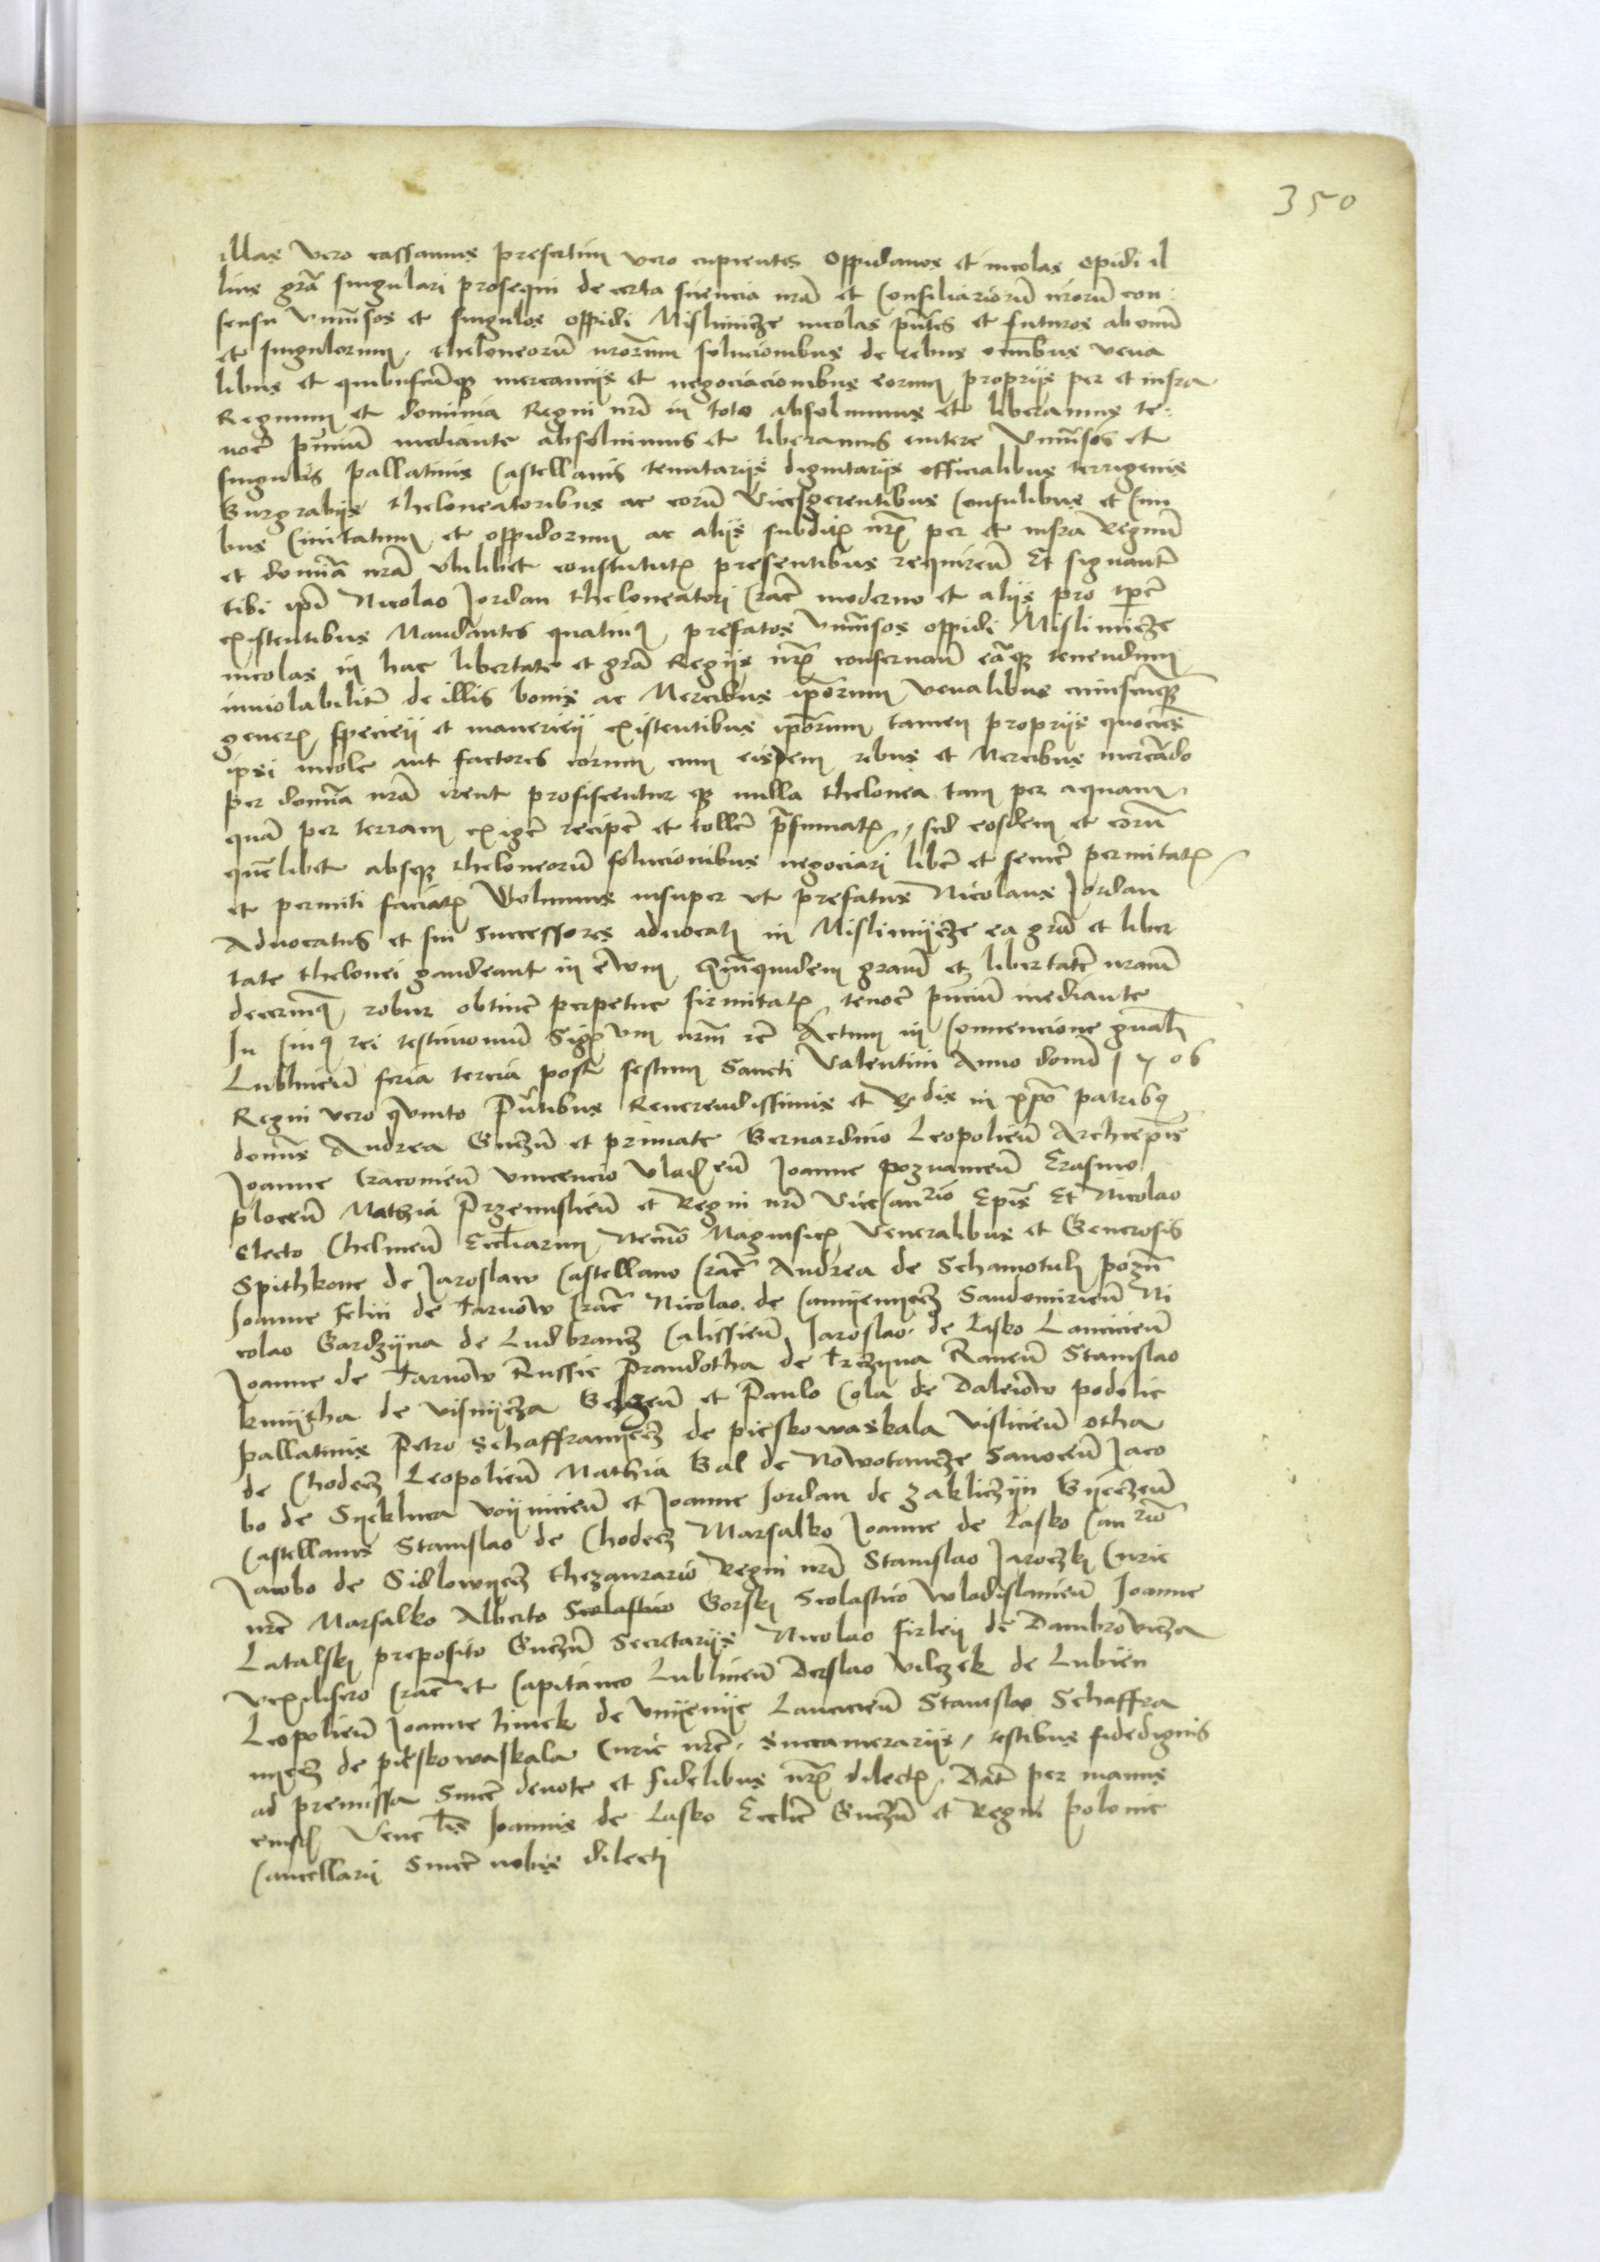 350
illas vero cassamus presertim vero cupientes oppidanos et incolas opidi il
lius grã singulari prosequi de certa sciencia nrã et Consiliariorũ nrorũ con
sensu vniũsos et singulos oppidi Mislimicze incolas pñtes et futuros ab omĩ
et singulorum theloneorũ nrorum solucionibus de rebus omĩbus vena
libus et quibuscũqз mercanciis et negociacionibus eorum propriis per et infra
Regnum et dominia Regni nrĩ in toto absoluimus et liberamus te
nore pñciũ mediante absoluimus et liberamus Vniũsis et
singulis pallatinis Castellanis tenutariis dignitariis officialibus terrigenis
Burgrabiis theloneatoribus ac eorũ vicesgerentibus Consulibus et Ciui
bus Ciuitatum et oppidorum ac aliis subditis nrĩs per et infra Regnũ
et domĩa nrã vbilibet constitutis presentibus requireñ Et signantẽ
tibi ipĩ Nicolao Jordan theloneatori Crac̃ moderno et aliis pro tpẽ
existentibus Mandantes quatinus prefatos vniũsos oppidi Mislimicze
incolas in hac libertate et grã Regiis nrĩs conseruañ eãqз tenendum
inuiolabilitẽ de illis bonis ac Mercibus ip̃orum venalibus cuiuscũqз
generis speciei et maneriei existentibus ip̃orum tamen propriis quocies
ipsi incole aut factores eorum cum eisdem rebus et Mercibus mercãdo
per domĩa nrã irent proficiscentur qз nulla thelonea tam per aquam
quã per terram exigẽ recipẽ et tollẽ p̃sumatis, sed eosdem et eorũ
quẽlibet absqз theloneorũ solucionibus negociari liberẽ et secure permitatis
et permitti faciatis Volumus insuper vt prefatus Nicolaus Jordan
Aduocatus et sui Successores aduocati in Mislimiicze ea grã et liber
tate thelonei gaudeant in ẽwm Quãquidem graciã et libertatẽ nram
decernimus robur obtinẽ perpetue firmitatis tenorẽ pñciũ mediante
In cuius rei testimoniũ Sigillum nrm̃ rc̃ Actum in Conuencione gñali
Lublineñ feria tercia post festum Sancti Valentini Anno domĩ 1506
Regni vero quinto Pñtibus Reuerendissimis et Rdis in xp̃o patribus
domĩs Andrea Gnezñ et primate Bernardino Leopolieñ Archiep̃is
Joanne Cracouieñ Vincencio Vladislauieñ Joanne poznanieñ Erasmo
ploceñ Mathia Przemislieñ et Regni nrĩ Vicecancellario Ep̃is Et Nicolao
electo Chelmeñ Eccl̃iarum Necnõ Magnificis Venerabilibus et Generosis
Spithkone de Jaroslaw Castellano Crac̃ Andrea de Schamotuli pozñ
Joanne Felici de Tarnow Crac̃ Nicolao de Camyenyecz Sandomirieñ Ni
colao Gardzyna de Ludbrancz Calissieñ Jaroslao de Lasko Lancicieñ
Joanne de Tarnow Russie Prandotha de Trczyna Raueñ Stanislao
kmytha de visnycza Belzeñ et Paulo Cola de Daleiow podolie
pallatinis Petro Schaffranyecz de pieskowaskala vislicieñ otha
de Chodecz Leopolieñ Mathia Bal de Nowotancze Sanoceñ Jaco
bo de Syeklucza voynicieñ et Joanne Jordan de zakliczyn Byeczeñ
Castellanis Stanislao de Chodecz Marsalko Joanne de Lasko Cancellario
Jacobo de Sidlowyecz thezaurario Regni nrĩ Stanislao Jaroczki Curie
nrẽ Marsalko Alberto Scolastico Gorski Scolastico Wladislauieñ Joanne
Latalski preposito Gnezñ Secretariis Nicolao Firley de Dambrowicza
Vexillifero Crac̃ et Capitaneo Lublineñ Derslao Vilczek de Lubien
Leopolieñ Joanne hinek de vnyenye Lancicieñ Stanislao Schaffra
nyecz de pieskowaskala Curie nrẽ Succamerariis, testibus fidedignis
ad premissa Sincẽ deuote et fidelibus nrĩs dilectis Dat̃ per manus
eiusdem Venẽlis Joannis de Lasko Eccl̃ie Gnezñ et Regni polonie
Cancellarii Sincẽ nobis dilecti